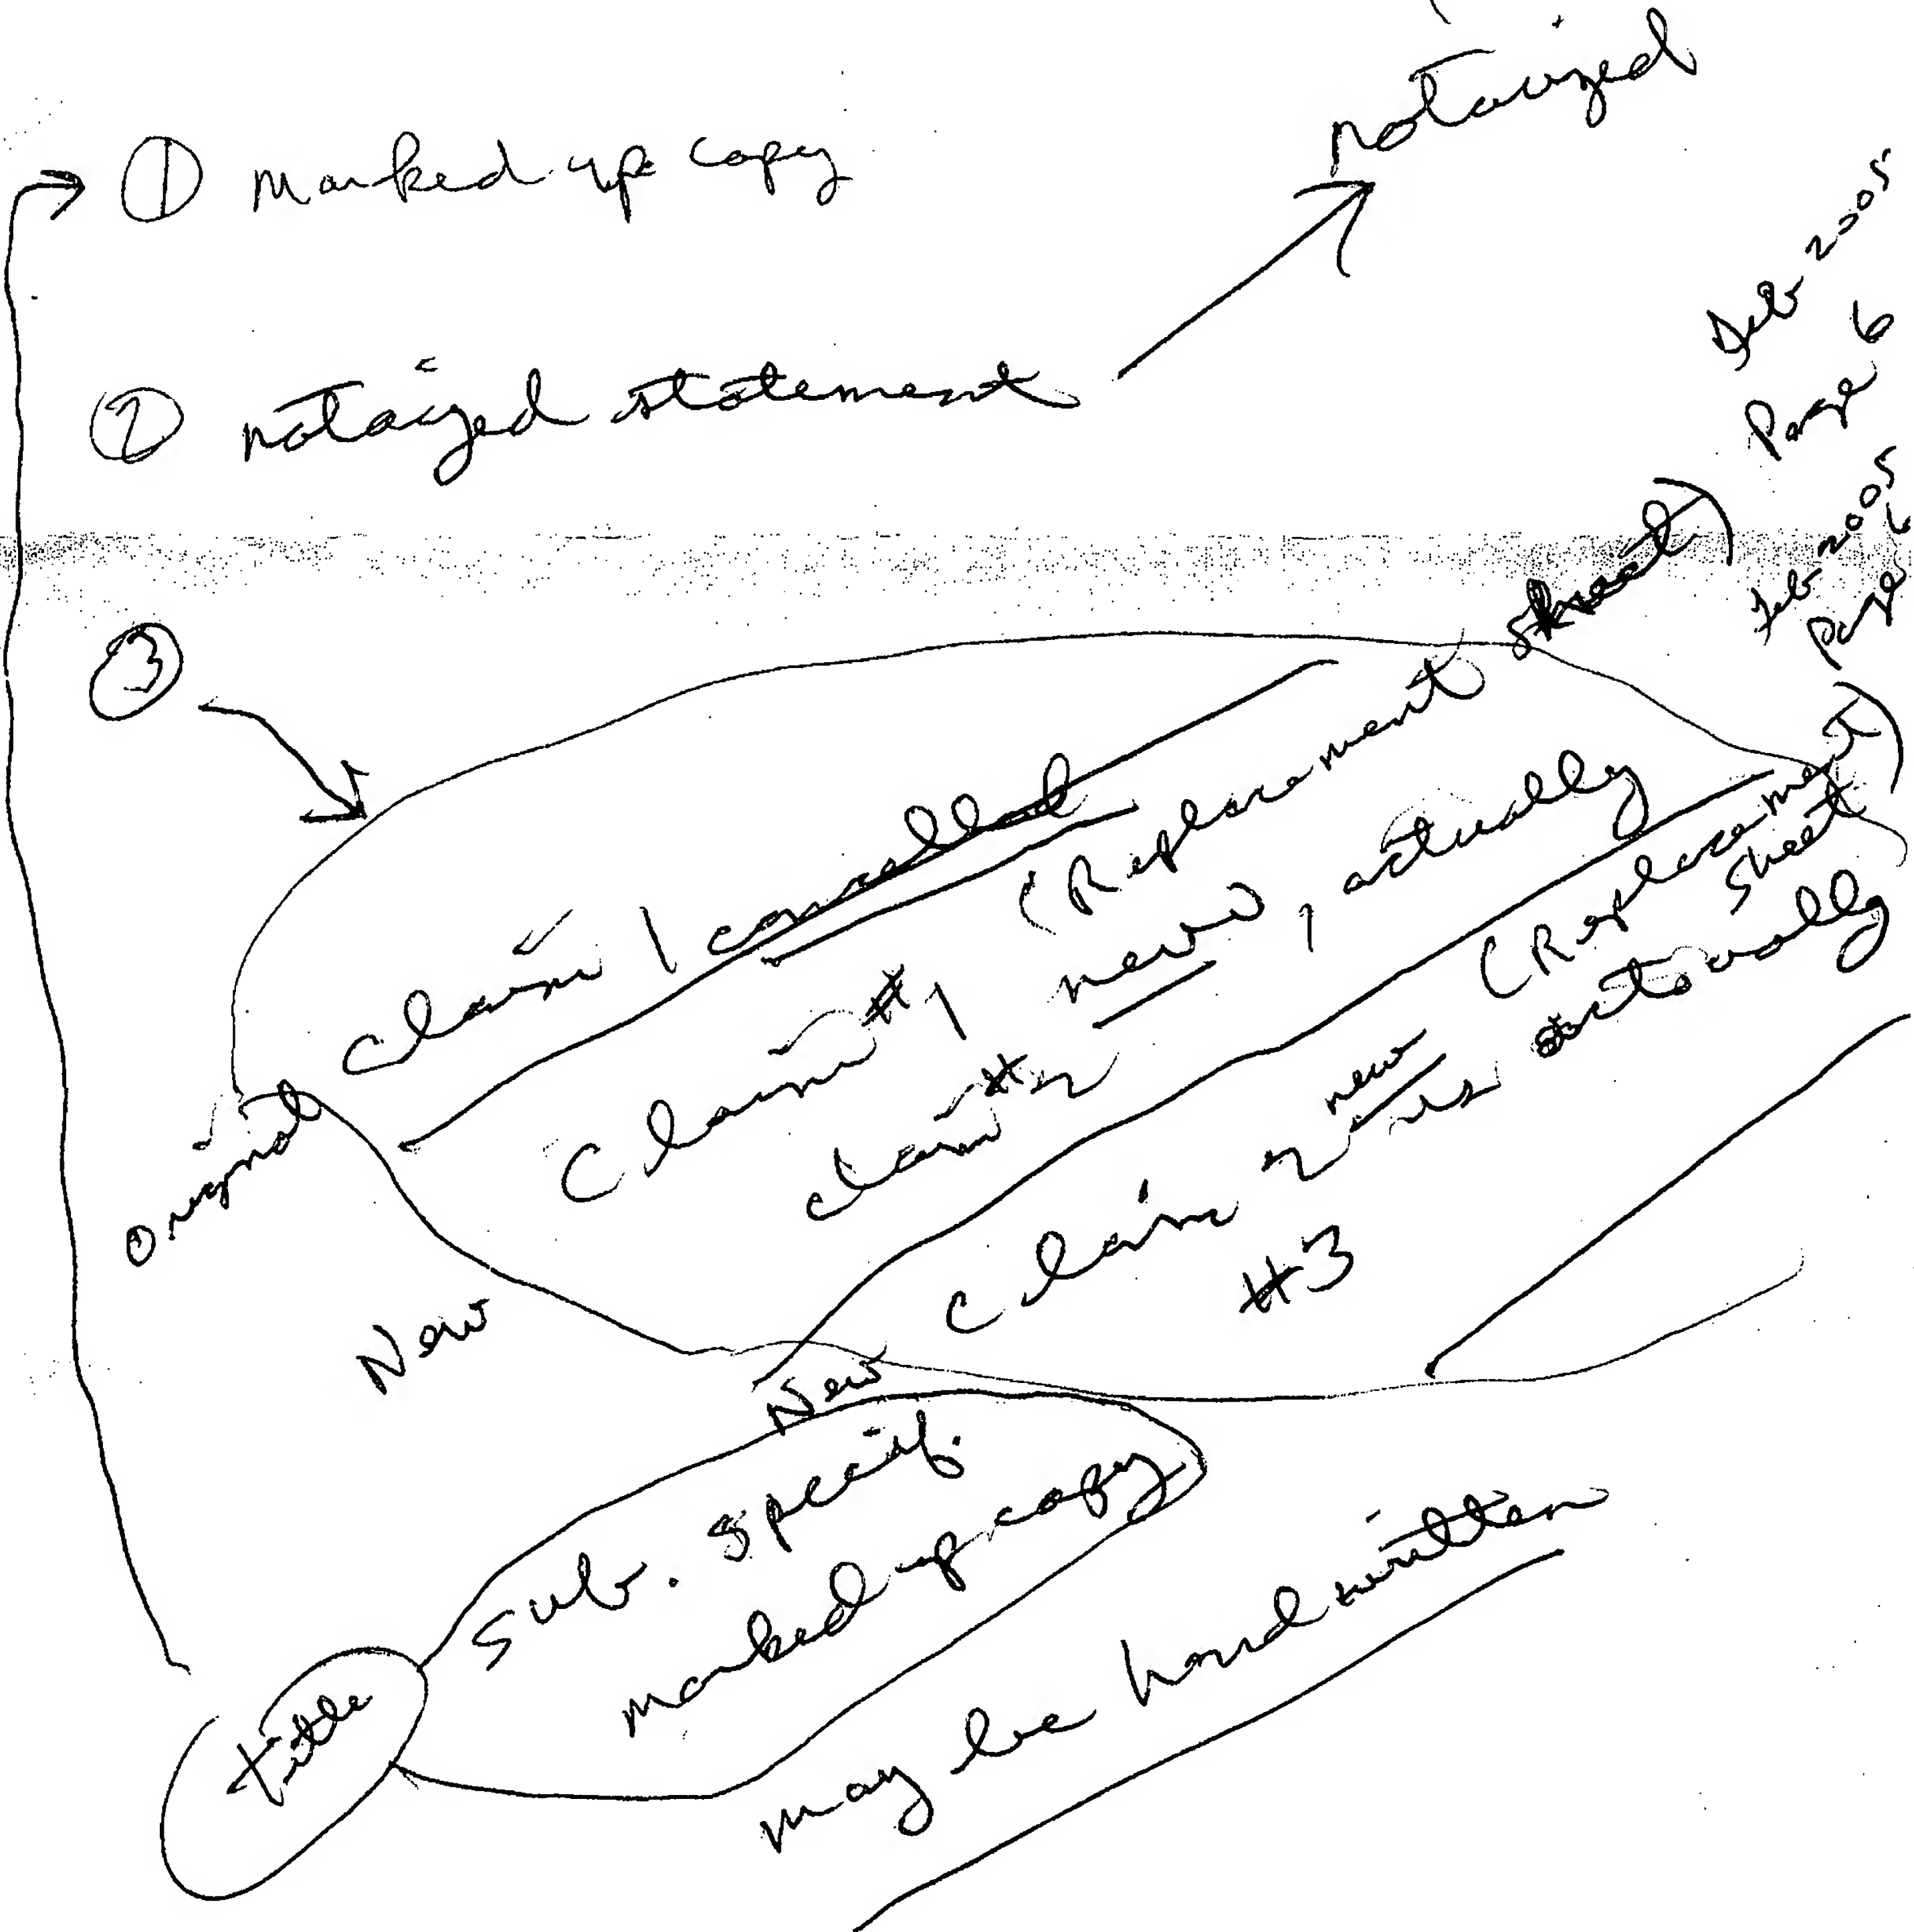 ① Marked up copy
notarized
② notarized statement
Feb 2005
Page 6
Feb 2005
Page 6
③
Original claim 1 cancelled
(Replacement sheet)
New claim #1 new, actually
claim #2
(Replacement sheet)
New claim 2 new is actually
#3
title
sub. specif.
marked up copy
may be handwritten